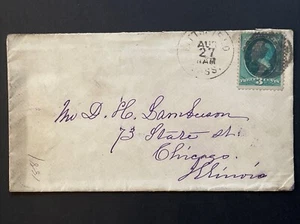 AUG
27
MASS.
Mr D. H. Lamberson
73 State St.
Chicago.
Illinois